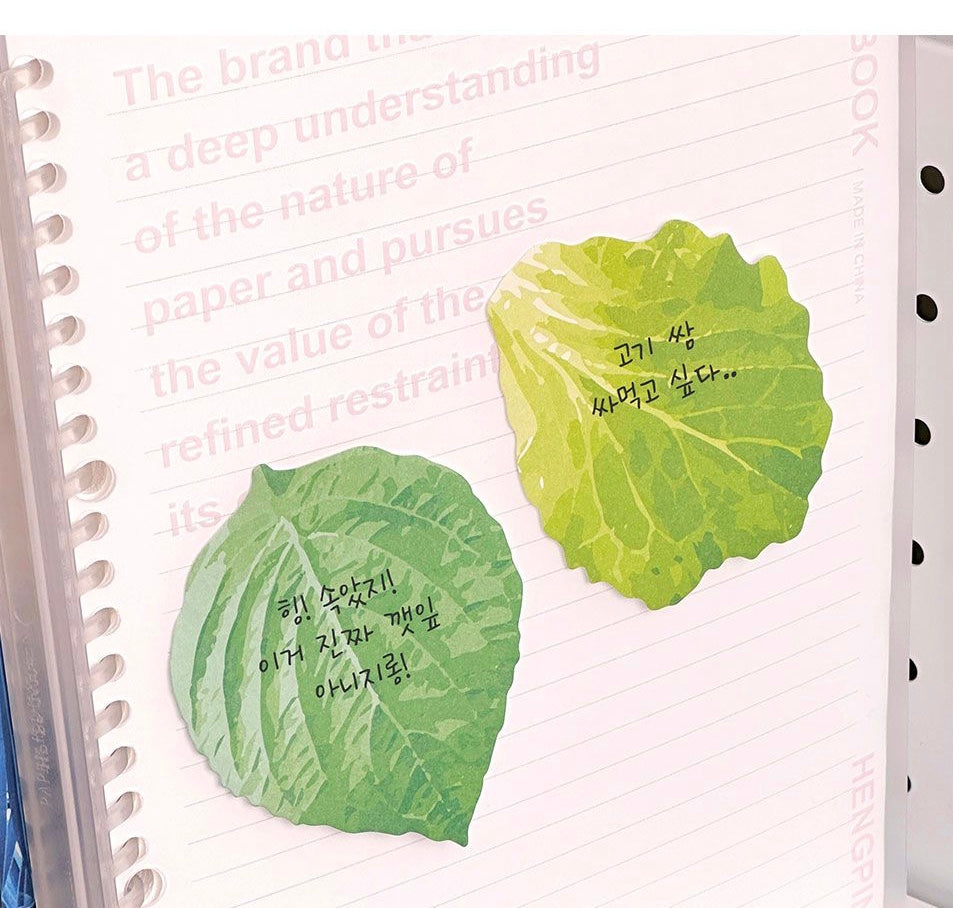 The brand
a deep understanding
of the nature of
paper and pursues
the value of the
refined restraint
its
BOOK | MADE IN CHINA
고기 쌈
싸먹고 싶다..
헹! 속았지!
이거 진짜 깻잎
아니지롱!